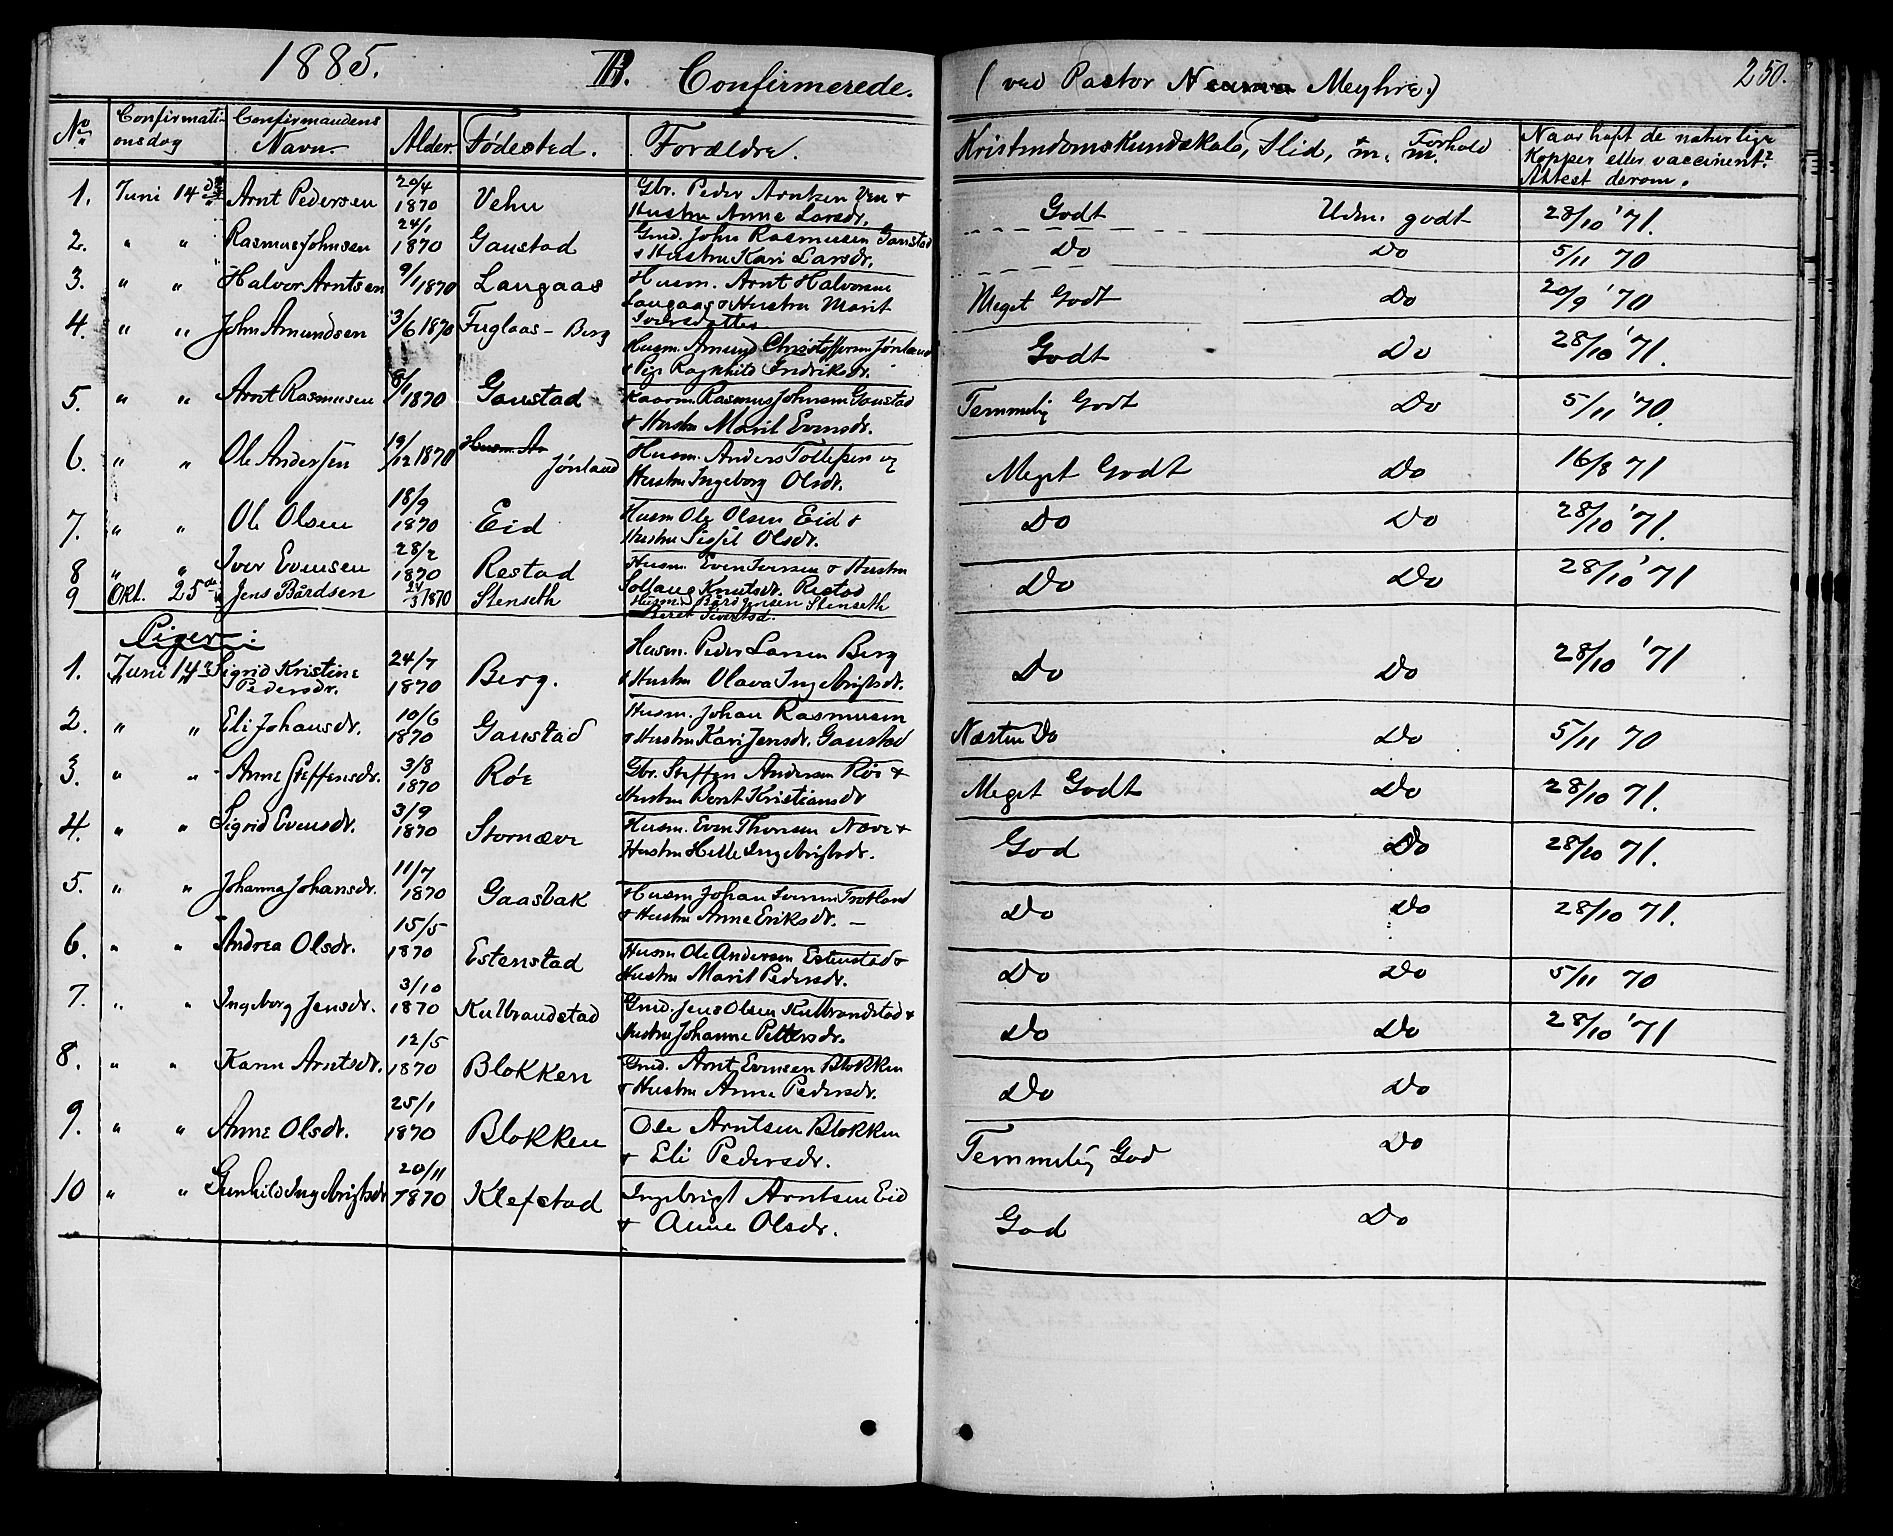 1885. B. Confirmerede. (ved Pastor Meyhre.) 250.
No Confirmationsdag Confirmandens Navn. Alder. Fødested. Forældre. Kristendomskundskab, Flid, m. m. Forhold Naar haft de naturlige Kopper eller vaccineret? Attest derom.
1. Juni 14de Arnt Pedersen 20/4 1870 Vehn Gbr. Peder Arntsen Ven + Godt Udm. godt 28/10 '71.
Hustru Anne Larsdr.
2. " " Rasmus Johnsen 24/1 1870 Gaustad Gmd. John Rasmusen Gaustad Do Do 5/11 70
+ Hustru Kari Larsdr.
3. " " Halvor Arntsen 9/1 1870 Langaas Husm. Arnt Halvorsen Meget Godt Do 20/9 '70
Langaas + Hustru Marit
Iversdatter
4. " " John Amundsen 3/6 1870 Fuglaas - Berg Husm. Amund Christoffersen Jønland Godt Do 28/10 '71.
+ Pige Ragnhild Endriksdr.
5. " " Arnt Rasmusen 8/1 1870 Gaustad Kaarm. Rasmus Johnsen Gaustad Temmelig Godt Do 5/11 '70.
+ Hustru Marit Evensdr.
6. " " Ole Andersen 19/12 1870 Husm. An Jønland Husm. Anders Tollefsen og Meget Godt Do 16/8 71
Hustru Ingeborg Olsdr.
7. " " Ole Olsen 18/9 1870 Eid Husm Ole Olsen Eid + Do Do 28/10 '71.
Hustru Sissil Olsdr.
8 " " Iver Evensen 28/2 1870 Restad Husm. Even Iversen + Hustru Do Do 28/10 '71
Solfaug Knutsdr. Restad
9 Okt. 25de Jens Bårdsen 24/3 1870 Stenseth Husmd Bård Jensen Stenseth
Beret Siversd.
Piger:
1. Juni 14de Sigrid Kristine Pedersdr. 24/7 1870 Berg. Husm. Peder Larsen Berg Do Do 28/10 '71
+ Hustru Olava Ingebrigtsdr.
2. " " Eli Johansdr. 10/6 1870 Gaustad Husm. Johan Rasmusen Næsten Do Do 5/11 70
+ Hustru Kari Jensdr. Gaustad
3. " " Anne Steffensdr. 3/8 1870 Røe Gbr. Steffen Andersen Røe + Meget Godt Do 28/10 71.
Hustru Berit Kristiansdr
4. " " Sigrid Evensdr. 3/9 1870 Stornæve Husm. Even Thoresen Næve + God Do 28/10 71.
Hustru Helle Ingebrigtsdr.
5. " " Johanna Johansdr. 11/7 1870 Gaasbak Husm Johan Iversen Trotland Do Do 28/10 71.
+ Hustru Anne Eriksdr. —
6. " " Andrea Olsdr. 15/5 1870 Estenstad Husm Ole Andersen Estenstad + Do Do 5/11 70
Hustru Marit Pedersdr.
7. " " Ingeborg Jensdr. 3/10 1870 Kulbrandstad Gmd. Jens Olsen Kulbrandstad + Do Do 28/10 '71
Hustru Johanne Pettersdr.
8. " " Karen Arntsdr. 12/5 1870 Blokken Gmd. Arnt Evensen Blokken Do Do
+ Hustru Anne Pedersdr.
9. " " Anne Olsdr. 25/1 1870 Blokken Ole Arntsen Blokken Temmelig God Do
+ Eli Pedersdr.
10 " " Gunhild Ingebrigtsdr 20/11 1870 Klefstad Ingebrigt Arntsen Eid God Do
+ Anne Olsdr.